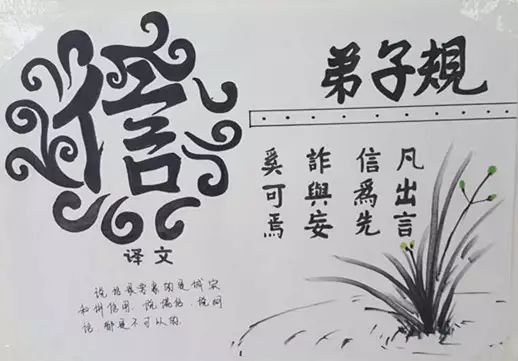 信
弟子規
凡出言
信爲先
詐與妄
奚可焉
译文
说话最重要的是诚实
和讲信用，说谎话，说
话，都是不可以的。